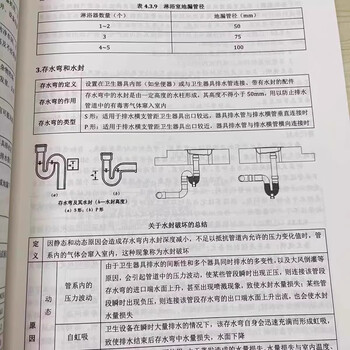 表 4.3.9 淋浴室地漏管径
淋浴器数量（个） 地漏管径（mm）
1~2 50
3 75
4~5 100
3.存水弯和水封
存水弯的定义 设置在卫生器具内部（如坐便器）或与卫生器具排水管连接、带有水封的配件
存水弯的作用 存水弯中的水封是由一定高度的水柱形成，其高度不得小于 50mm，用以防止排水
管道中的有毒害气体窜入室内
存水弯的类型 S 形：适用于排水横支管距卫生器具出口较远，器具排水管与排水横管垂直连接时
P 形：适用于排水横支管距卫生器具出口较近，器具排水管与排水横管横向连接时
存水弯及其水封（h—水封高度）
（a）S 形；（b）P 形
关于水封破坏的总结
定义 因静态和动态原因会造成存水弯内水封深度减小，不足以抵抗管道内允许的压力变化值时，管
系内的气体会窜入室内，这种现象称为水封破坏
原因 动态 管系内的压力波动 由于卫生器具排水的间断性和多个器具同时排水的多变性，以及大风倒灌等
原因，会引起管道中的压力波动，使某些管段瞬时出现正压，则连接该管段
存水弯的进口端水面上升，甚至出现喷溅现象，致使水封水量损失；某些管
段瞬时出现负压，则连接该管段存水弯的出口端水面上升出流，也会使水封
水量损失
自虹吸 卫生设备在瞬时大量排水的情况下，该存水弯自身会迅速充满而形成虹吸，
致使排水结束后存水弯中水封水量损失，水面下降